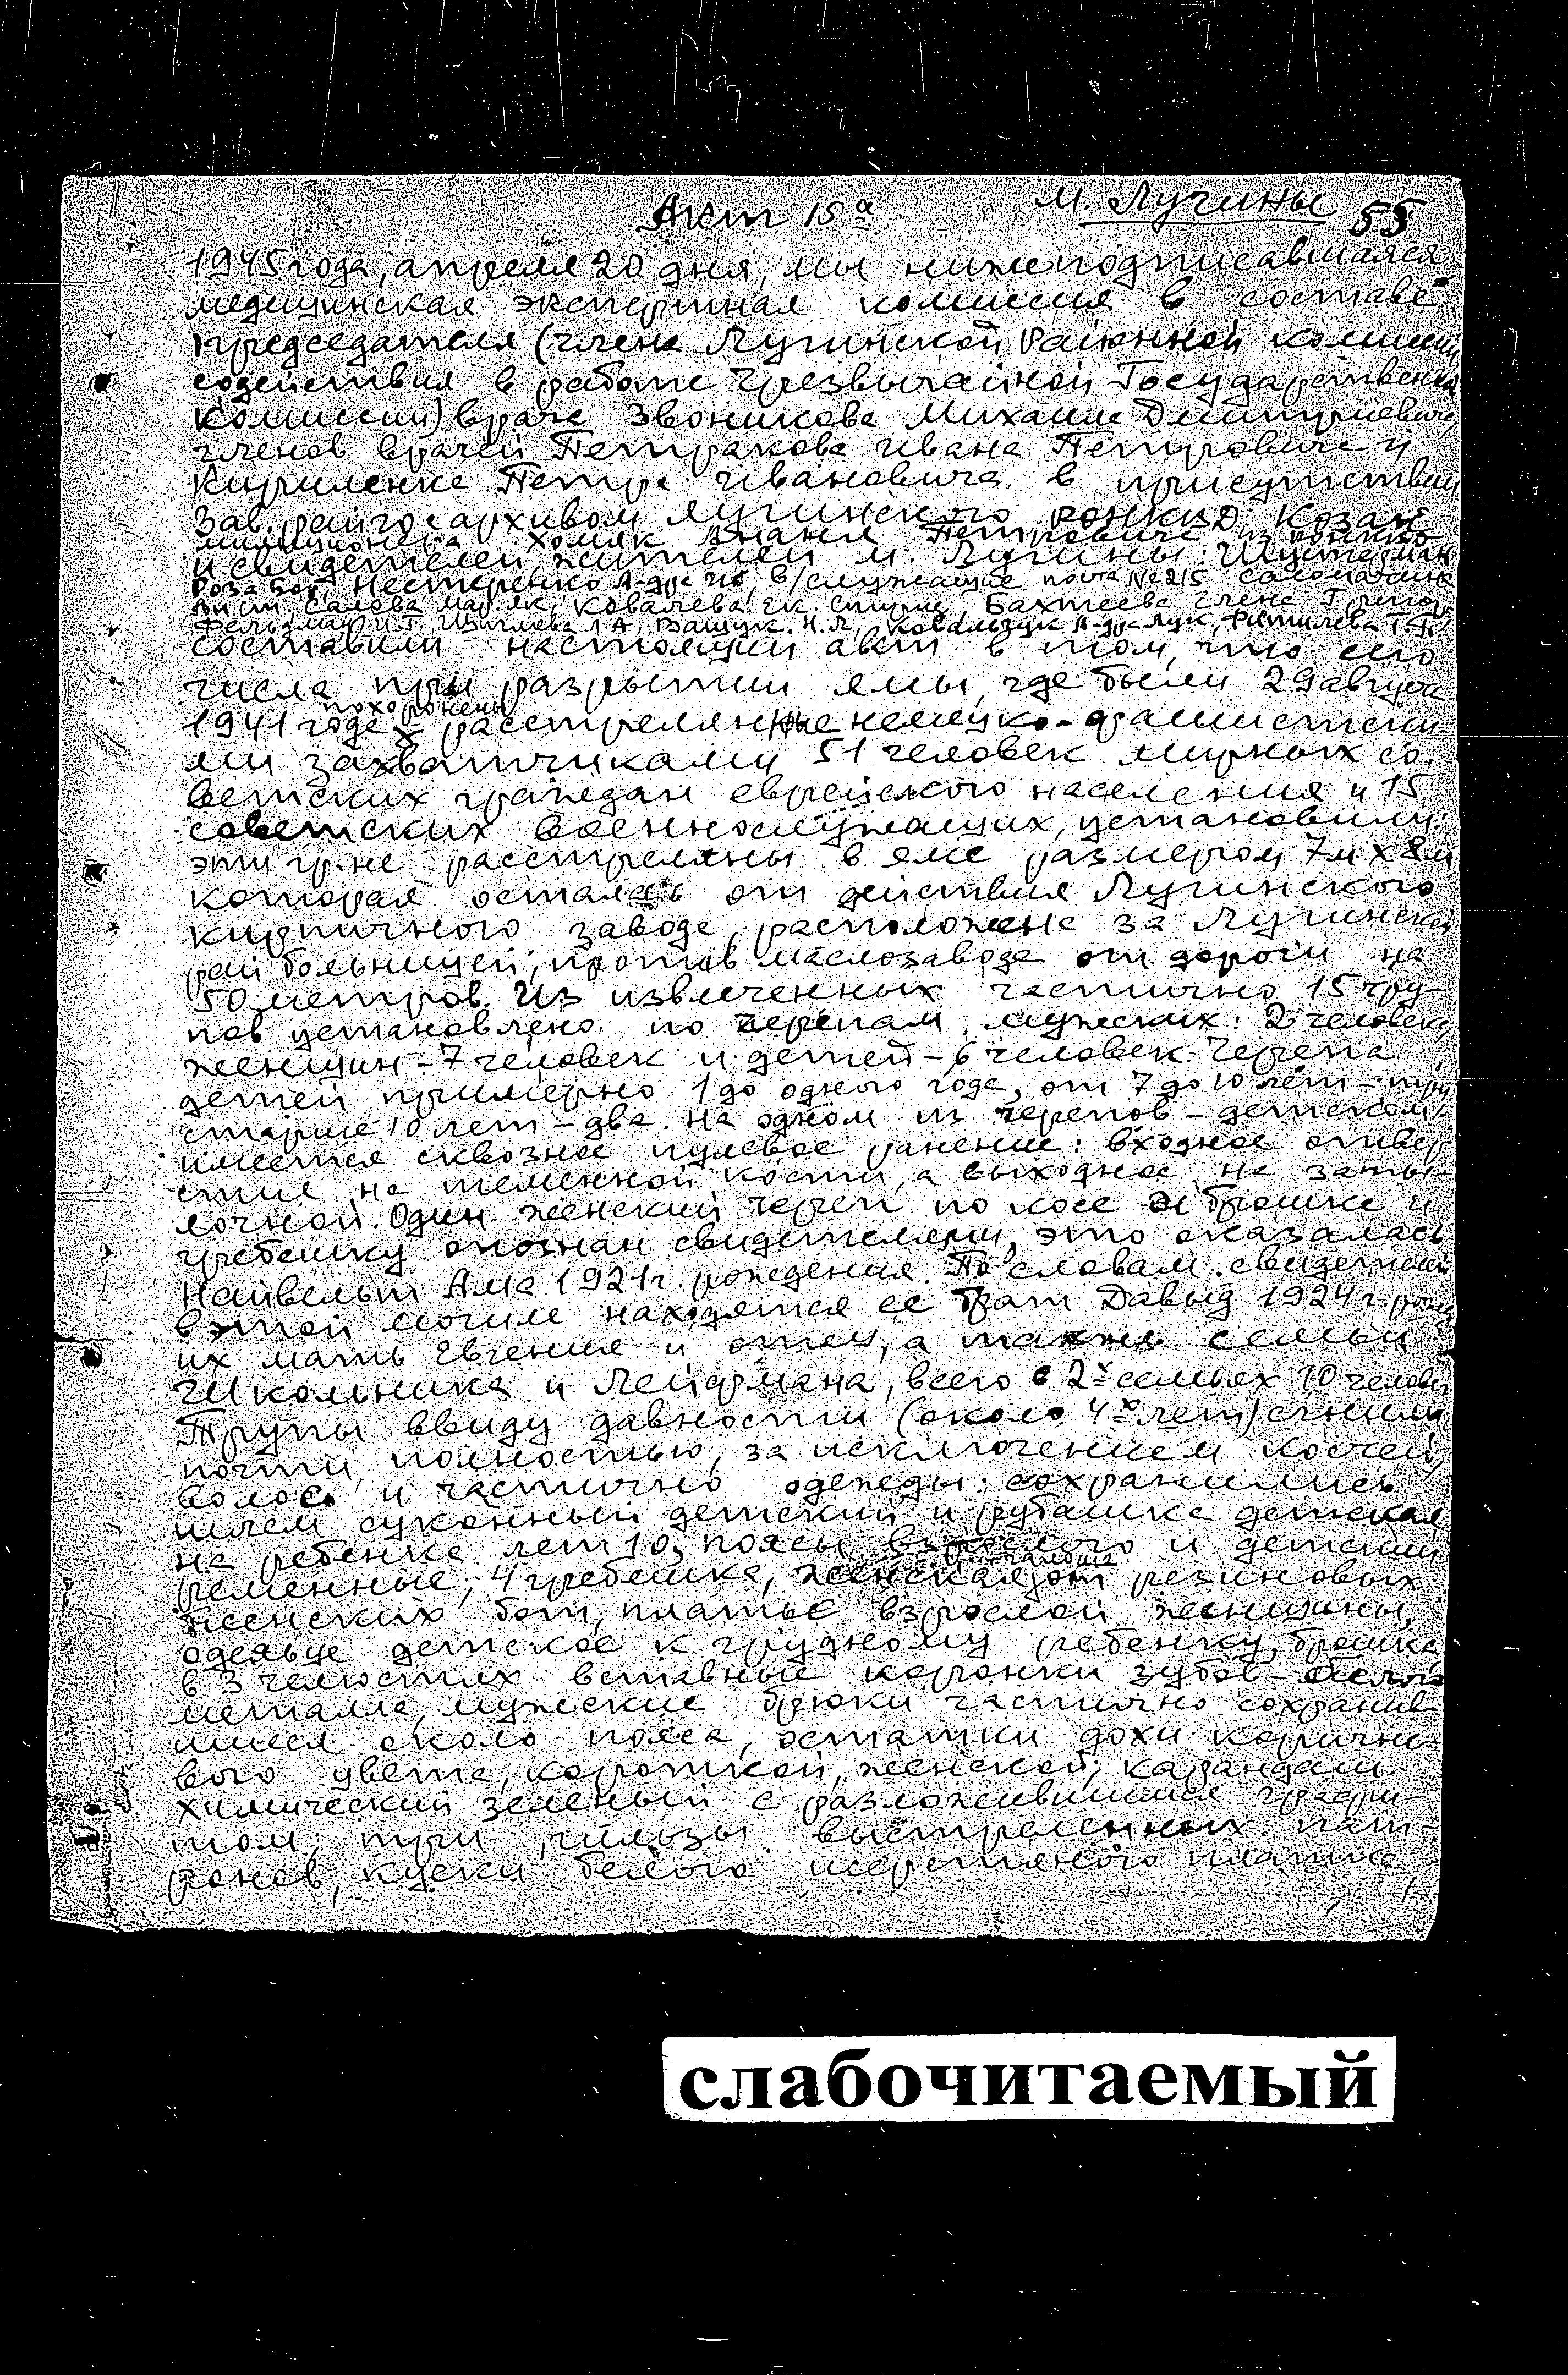 Акт 15а
м. Лучины
55
1945 года, апреля 20 дня, мы нижеподписавшаяся
медицинская экспертная комиссия в составе
председателя (члена Лугинской Районной комиссии
содействия в работе Чрезвычайной Государственной
Комиссии) врача Звоникова Михаила Дмитриевича,
членов врачей Петракова Ивана Петровича и
Кириленка Петра Ивановича в присутствии
Зав. райгосархивом Лугинского РОНКВД Козак
милиционера Хомяк Петровича из РОНКВД
и свидетелей, жителей м. Лугины: Шустерман
Роза Бор, Нестеренко А-др в/служащие почта № 215
Салова Мар. Як., Ковалева Ек. Бахтеева Елена Григор
Фельдман И.Г. Ващук Н.Я, Ковальчук А-др Лук,
составили настоящий акт в том, что сего
числа при разрытии ямы, где были 29 августа
похоронены
1941 года х расстрелянные немецко-фашистски-
ми захватчиками 51 человек мирных со-
ветских граждан еврейского населения и 15
советских военнослужащих, установили:
эти гр-не расстреляны в яме размером 7м х 8м
которая осталась от действия Лугинского
кирпичного завода, расположена за Лугинской
рай больницей, против маслозавода от дороги на
50 метров. Из извлеченных частично 15 тру-
пов установлено по черепам мужских: 2 человека,
женщин - 7 человек и детей - 6 человек. Черепа
детей примерно 1 до одного года, от 7 до 10 лет - три
старше 10 лет - два. На одном из черепов - детском,
имеется сквозное пулевое ранение: входное отвер-
стие на теменной кости, а выходное на заты-
лочной. Один женский череп по косе и брошке и
гребешку опознан свидетелями, это оказалась
Найвельт Ама 1921 г. рождения. По словам свидетелей
в этой могиле находятся ее брат Давыд 1924 г. рожд
их мать Евгения и отец, а также семьи
Школьника и Лейфмана, всего в 2х семьях 10 человек
Трупы ввиду давности (около 4х лет) сгнили
почти полностью, за исключением костей,
волос и частично одежды: сохранились
шлем суконный детский и рубашка детская
на ребенке лет 10, поясы взрослого и детский
галоша
ременные, 4 гребешка, женская от резиновых
женских бот, платье взрослой женщины,
одеяльце детское к грудному ребенку, брошка
в 3 челюстях вставные коронки зубов - белого
металла, мужские брюки частично сохранив-
шиеся около пояса, остатки дохи коричне-
вого цвета, короткой, женской, карандаш
химический зеленый с разложившимся графи-
том, три гильзы выстреленных пат-
ронов, куски белого шерстяного платка
слабочитаемый